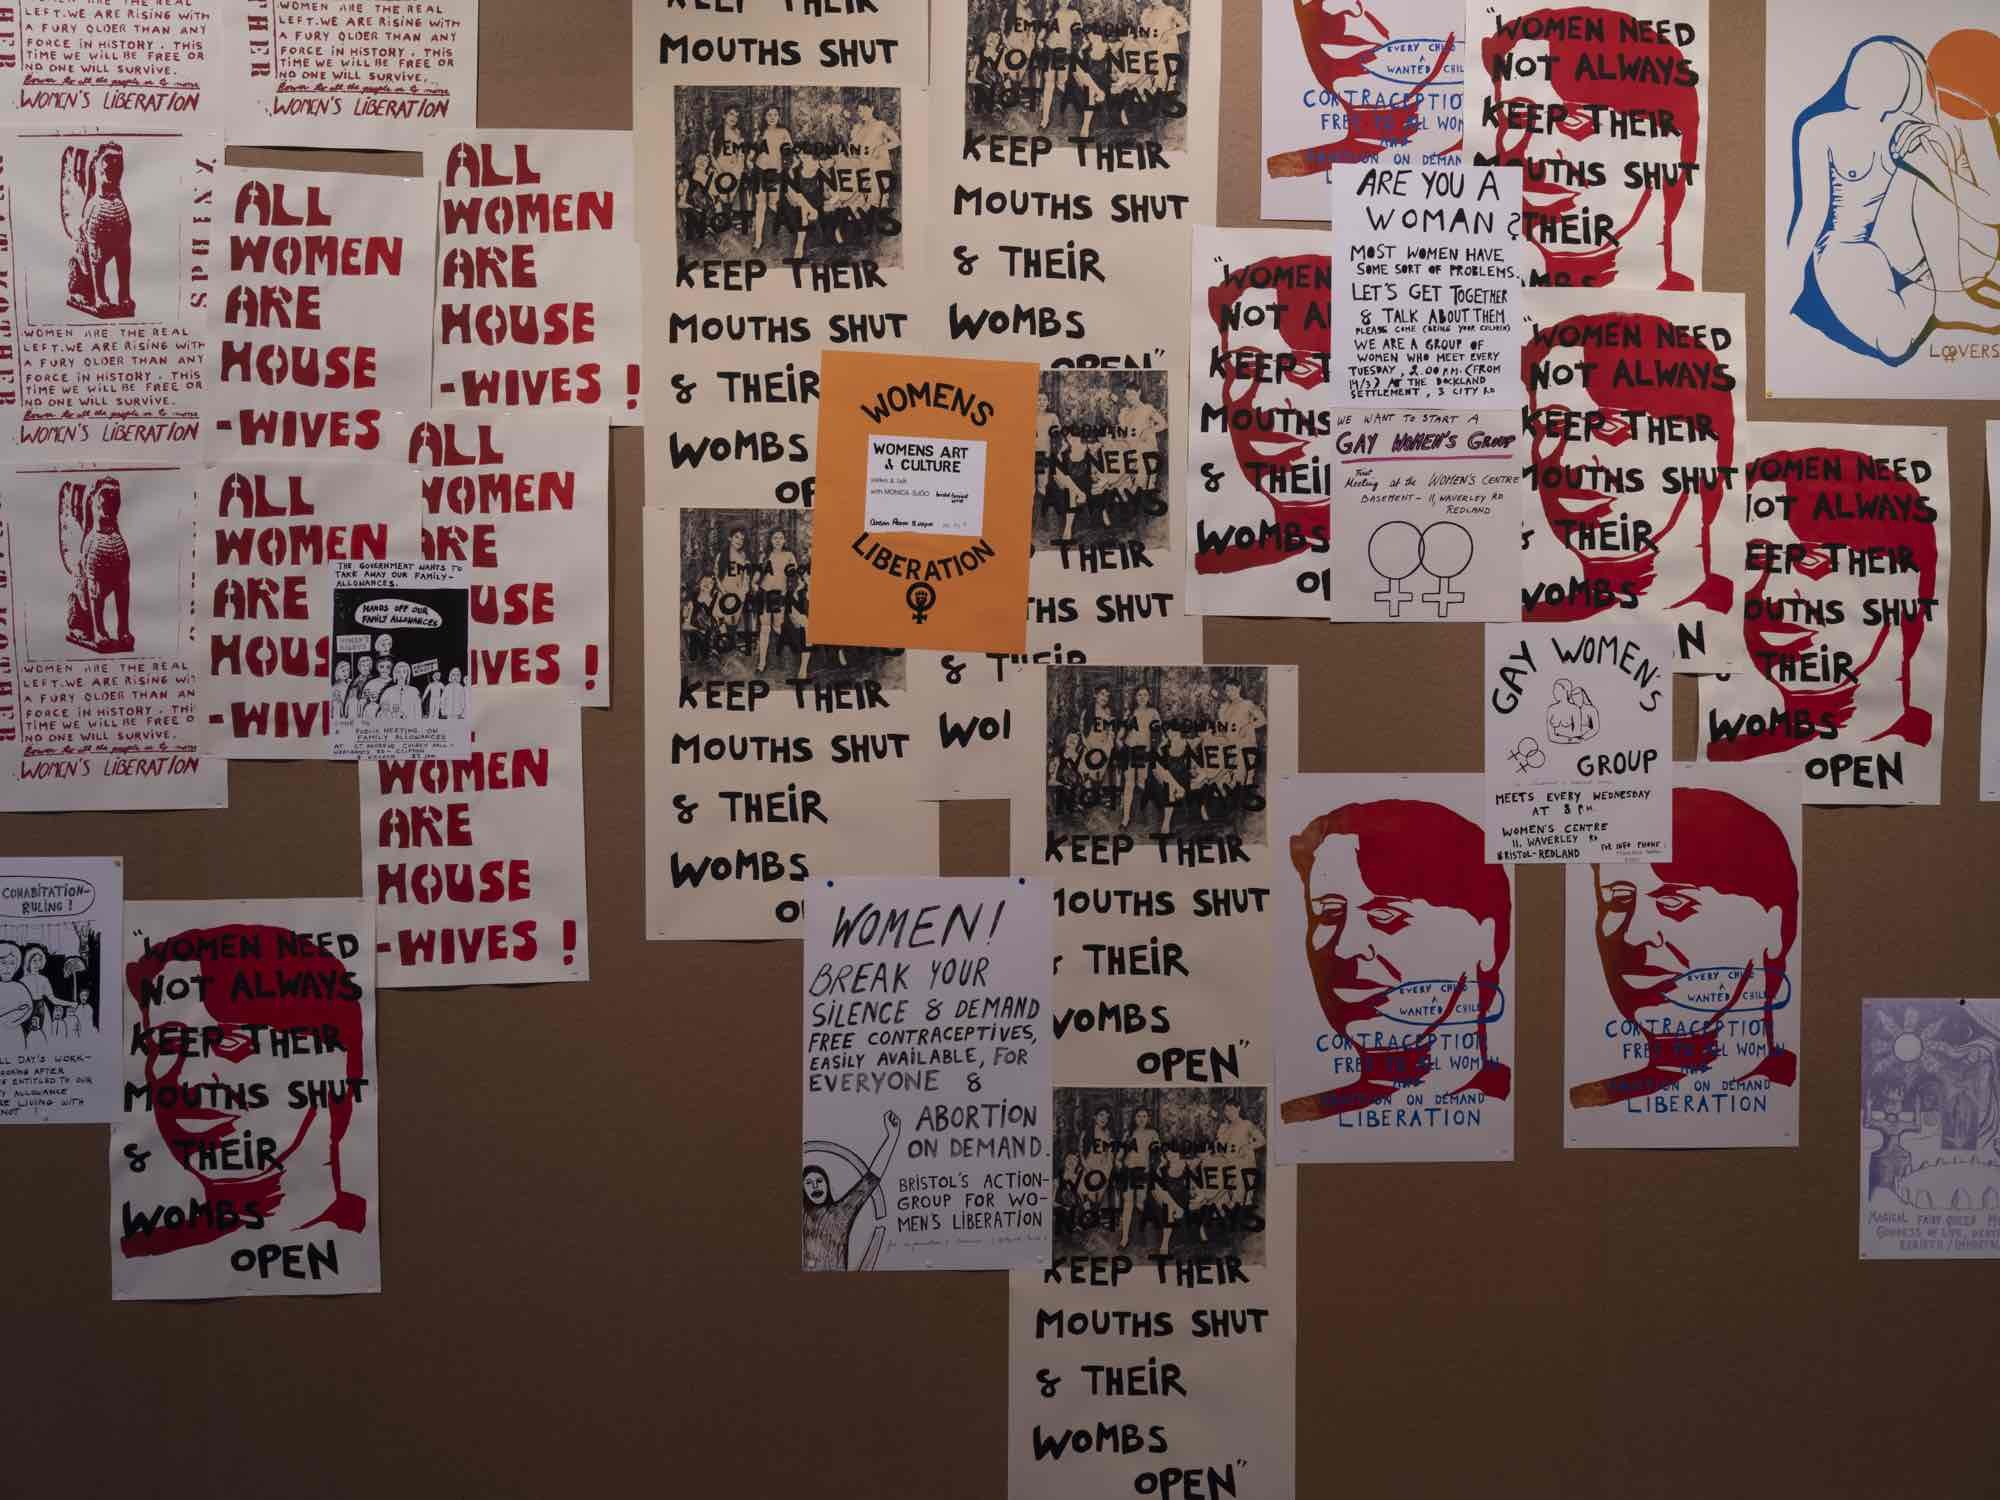 WOMEN ARE THE REAL
LEFT. WE ARE RISING WITH
A FURY OLDER THAN ANY
FORCE IN HISTORY. THIS
TIME WE WILL BE FREE OR
NO ONE WILL SURVIVE.
WOMEN'S LIBERATION
WOMEN ARE THE REAL
LEFT. WE ARE RISING WITH
A FURY OLDER THAN ANY
FORCE IN HISTORY. THIS
TIME WE WILL BE FREE OR
NO ONE WILL SURVIVE.
Power to all the people or to none
WOMEN'S LIBERATION
SPHINX
WOMEN ARE THE REAL
LEFT. WE ARE RISING WITH
A FURY OLDER THAN ANY
FORCE IN HISTORY. THIS
TIME WE WILL BE FREE OR
NO ONE WILL SURVIVE.
Power to all the people or to none
WOMEN'S LIBERATION
WOMEN ARE THE REAL
LEFT. WE ARE RISING WIT
A FURY OLDER THAN AN
FORCE IN HISTORY. THI
TIME WE WILL BE FREE O
NO ONE WILL SURVIVE.
Power to all the people or to none
WOMEN'S LIBERATION
ALL
WOMEN
ARE
HOUSE
-WIVES
ALL
WOMEN
ARE
HOUSE
-WIVES!
ALL
WOMEN
ARE
HOUS
-WIVI
ALL
WOMEN
ARE
USE
IVES!
WOMEN
ARE
HOUSE
-WIVES!
THE GOVERNMENT WANTS TO
TAKE AWAY OUR FAMILY-
ALLOWANCES.
HANDS OFF OUR
FAMILY ALLOWANCES
COME TO
A PUBLIC MEETING ON
FAMILY ALLOWANCES
COHABITATION-
RULING!
LL DAY'S WORK-
OOKING AFTER
ENTITLED TO OUR
Y ALLOWANCE
RE LIVING WITH
NOT!
"WOMEN NEED
NOT ALWAYS
KEEP THEIR
MOUTHS SHUT
& THEIR
WOMBS
OPEN
KEEP THEIR
MOUTHS SHUT
EMMA GOLDMAN:
WOMEN NEED
NOT ALWAYS
KEEP THEIR
MOUTHS SHUT
& THEIR
WOMBS
OP
EMMA GO
WOMEN
NOT AL
KEEP THEIR
MOUTHS SHUT
& THEIR
WOMBS
O
EMMA GOLDMAN:
WOMEN NEED
NOT ALWAYS
KEEP THEIR
MOUTHS SHUT
& THEIR
WOMBS
OPEN"
GOLDMAN:
EN NEED
ALWAYS
THEIR
THS SHUT
& T EIR
WO
WOMENS
WOMENS ART
& CULTURE
slides & talk
with MONICA SJÖÖ
LIBERATION
EMMA GOLDMAN:
WOMEN NEED
NOT ALWAYS
KEEP THEIR
MOUTHS SHUT
THEIR
WOMBS
OPEN"
EMMA GOLDMAN:
WOMEN NEED
NOT ALWAYS
KEEP THEIR
MOUTHS SHUT
& THEIR
WOMBS
OPEN"
WOMEN!
BREAK YOUR
SILENCE & DEMAND
FREE CONTRACEPTIVES,
EASILY AVAILABLE, FOR
EVERYONE &
ABORTION
ON DEMAND.
BRISTOL'S ACTION-
GROUP FOR WO-
MEN'S LIBERATION
EVERY CHILD
A
WANTED CHIL
CONTRACEPTIO
FREE TO ALL WOM
AND
ABORTION ON DEMAN
"WOMEN NEED
NOT ALWAYS
KEEP THEIR
MOUTHS SHUT
THEIR
"WOMEN
NOT A
KEEP T
MOUTHS
& THEI
WOMBS
O
ARE YOU A
WOMAN ?
MOST WOMEN HAVE
SOME SORT OF PROBLEMS.
LET'S GET TOGETHER
& TALK ABOUT THEM
PLEASE COME (BRING YOUR CHILDREN)
WE ARE A GROUP OF
WOMEN WHO MEET EVERY
TUESDAY, 2.00 P.M. (FROM
14/3) AT THE DOCKLAND
SETTLEMENT, 3 CITY RD
WE WANT TO START A
GAY WOMEN'S GROUP
First
Meeting at the WOMEN'S CENTRE
BASEMENT - 11, WAVERLEY RD
REDLAND
"WOMEN NEED
NOT ALWAYS
KEEP THEIR
MOUTHS SHUT
& THEIR
WOMBS
N
WOMEN NEED
NOT ALWAYS
EEP THEIR
OUTHS SHUT
THEIR
WOMBS
OPEN
LOVERS
GAY WOMEN'S
GROUP
MEETS EVERY WEDNESDAY
AT 8 P.M.
WOMEN'S CENTRE
11, WAVERLEY RD
BRISTOL-REDLAND
FOR INFO PHONE:
EVERY CHILD
A
WANTED CHILD
CONTRACEPTION
FREE TO ALL WOMEN
AND
ABORTION ON DEMAND
LIBERATION
EVERY CHILD
A
WANTED CHILD
CONTRACEPTION
FREE TO ALL WOMEN
AND
ABORTION ON DEMAND
LIBERATION
MAGICAL FAIRY QUEEN
GODDESS OF LIFE, DEAT
REBIRTH/IMMORTAL